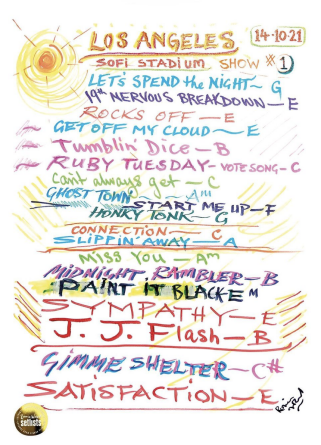 LOS ANGELES 14-10-21
SOFI STADIUM SHOW #1
LET'S SPEND the NIGHT - G
19th NERVOUS BREAKDOWN - E
ROCKS OFF - E
GET OFF MY CLOUD - E
Tumblin' Dice - B
RUBY TUESDAY - VOTE SONG - C
Can't always get - C
GHOST TOWN - Am
START ME UP - F
HONKY TONK - G
CONNECTION - C
SLIPPIN' AWAY - A
MISS YOU - Am
MIDNIGHT RAMBLER - B
PAINT IT BLACK - EM
SYMPATHY - E
J.J. Flash - B
GIMME SHELTER - C#
SATISFACTION - E
setlists